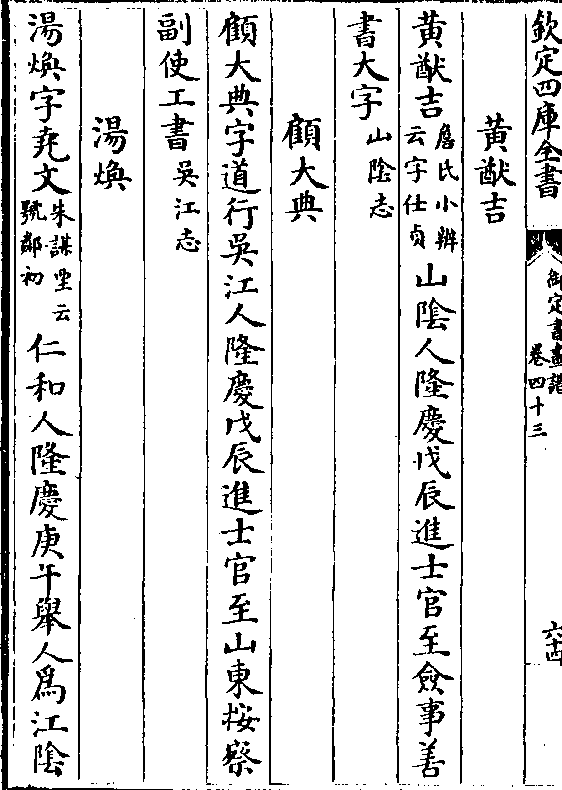 欽定四庫全書
御定書畫譜
卷四十三
六十四
黃猷吉
黃猷吉詹氏小辨云字仕貞山陰人隆慶戊辰進士官至僉事善
書大字山陰志
顧大典
顧大典字道行吳江人隆慶戊辰進士官至山東按察
副使工書吳江志
湯煥
湯煥字堯文朱謀垔云號鄰初仁和人隆慶庚午舉人爲江陰